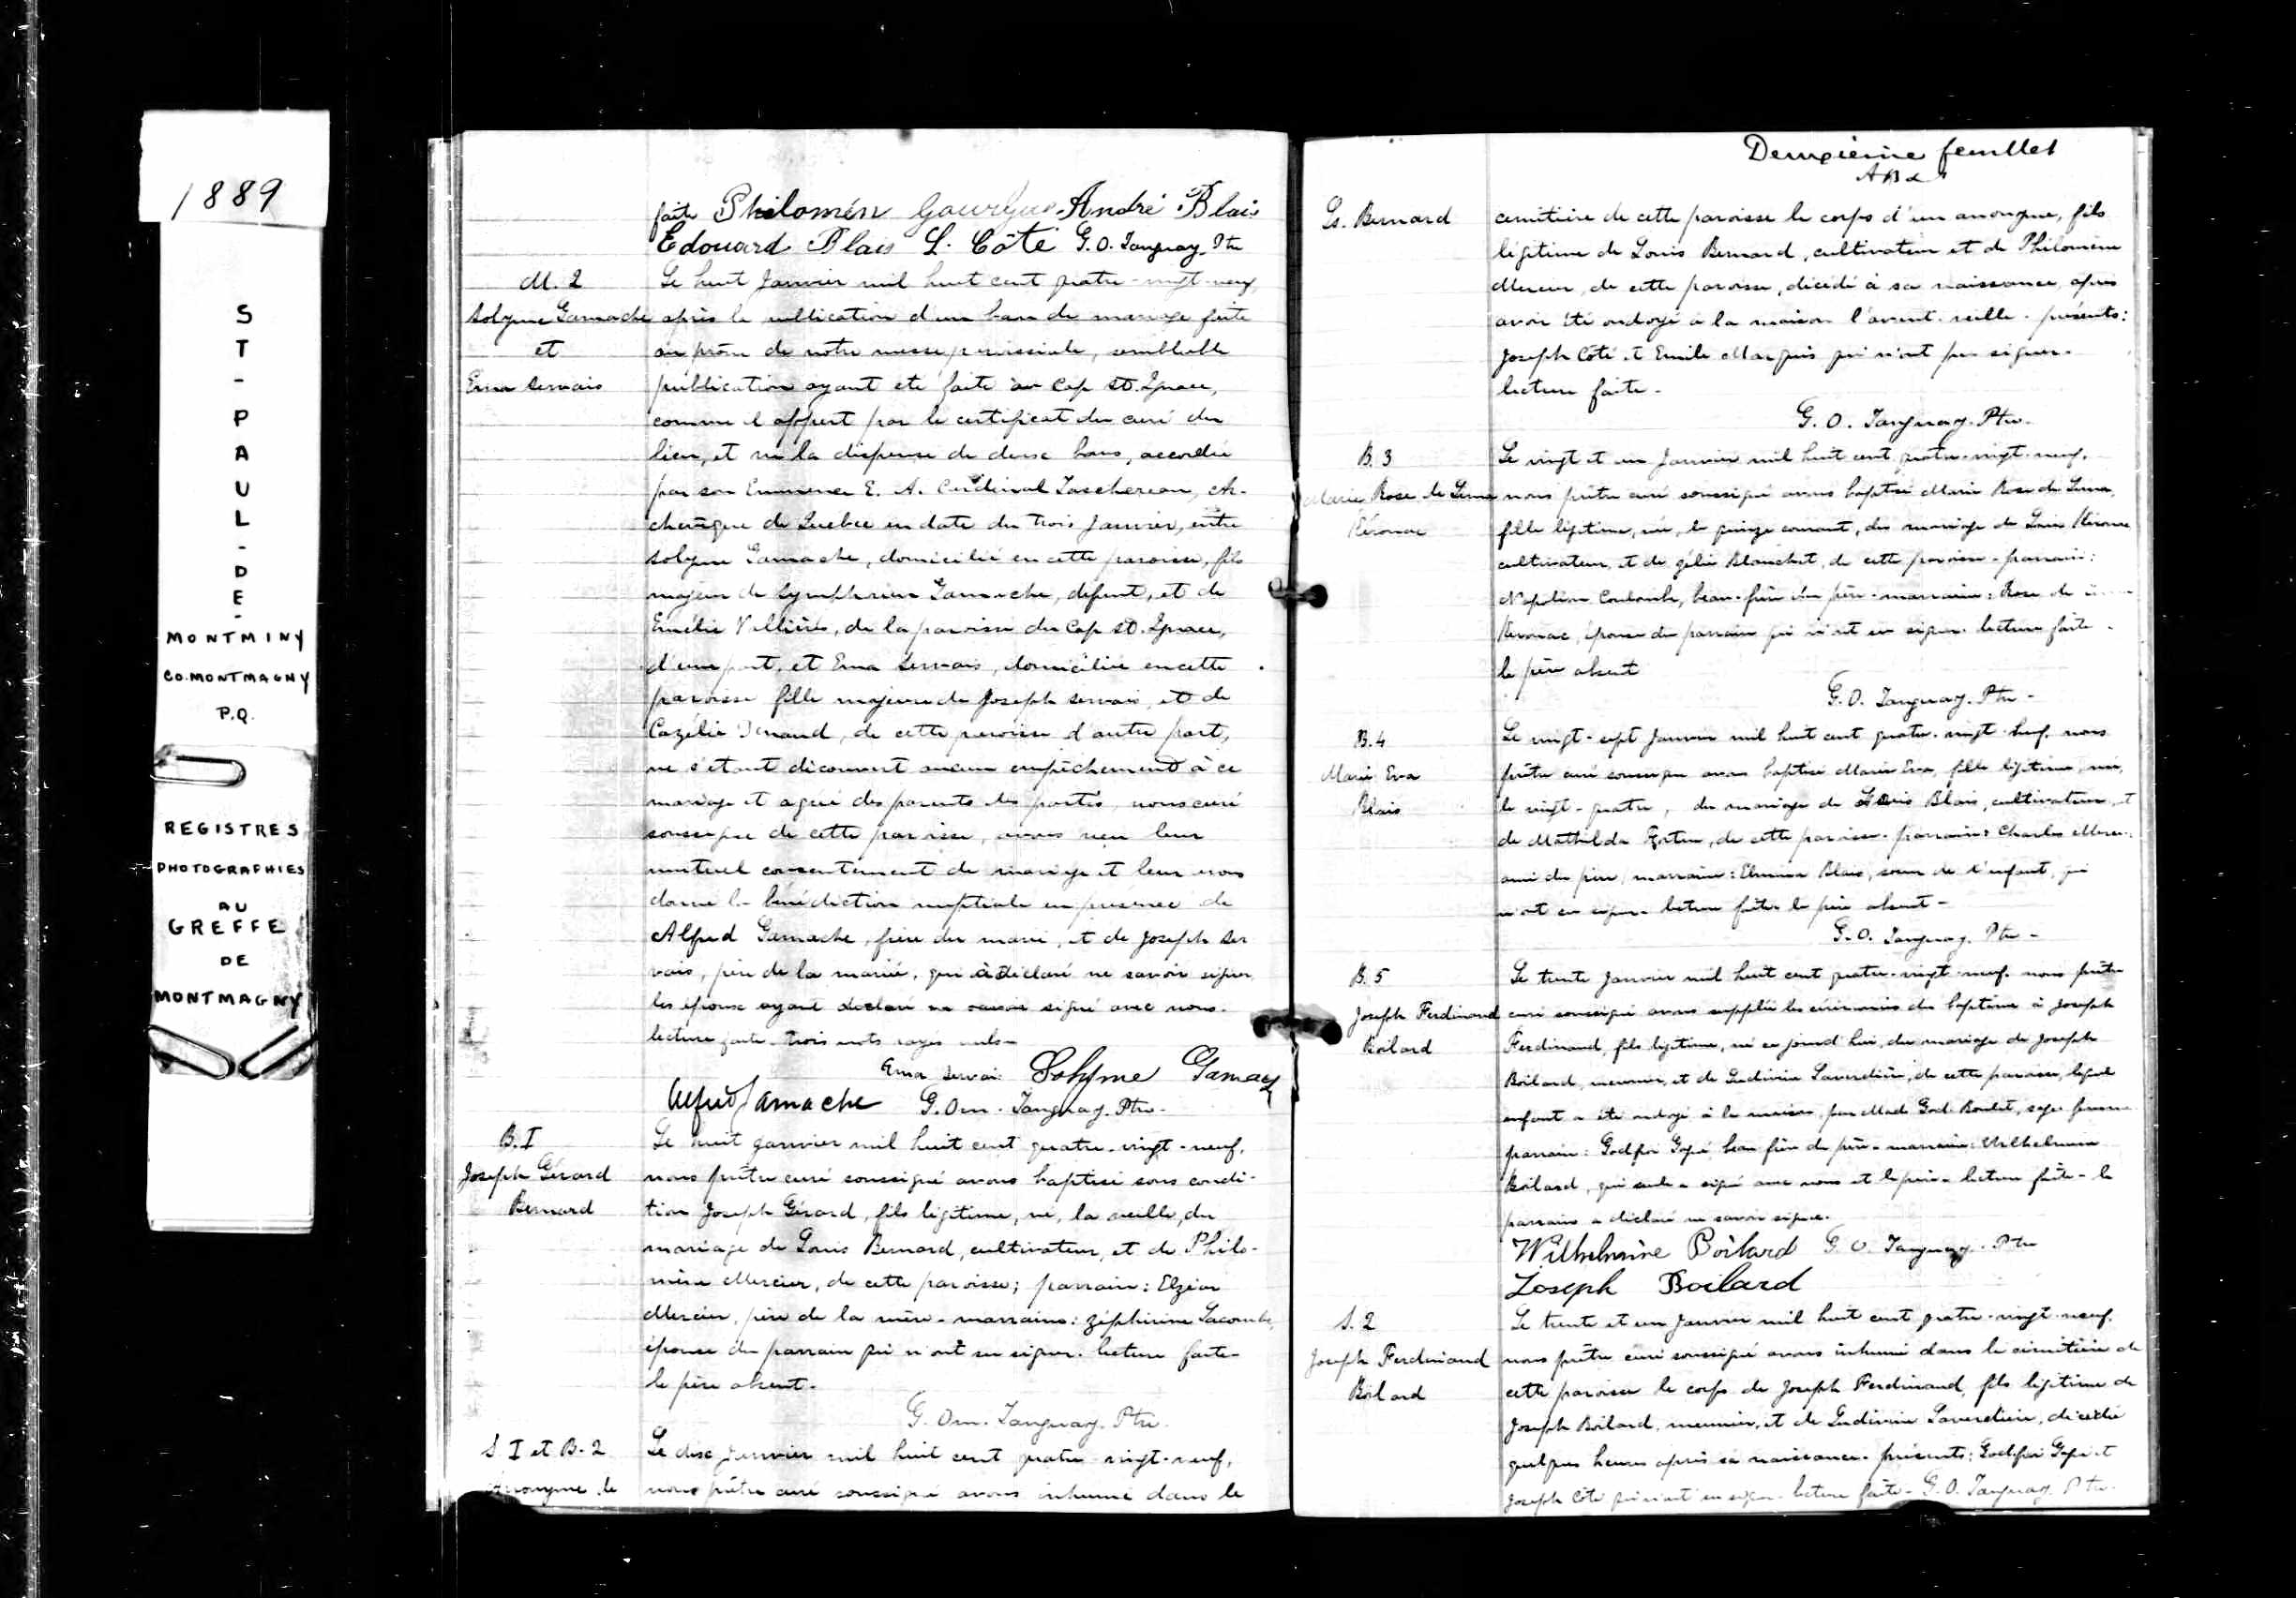 1889
ST-PAUL-DE-
MONTMINY
CO. MONTMAGNY
P.Q.
REGISTRES
PHOTOGRAPHIES
AU
GREFFE
DE
MONTMAGNY
faite Philomén André Blais
Edouard Blais L. Côté G. O. Tanguay. Ptre
M. 2
Solyme Gamache
et
Ema Servais
Le huit Janvier mil huit cent quatre-vingt-neuf,
après la publication d'un ban de mariage faite
au prône de notre messe paroissiale, semblable
publication ayant ete faite au Cap St. Ignace,
comme il appert par le certificat du curé du
lieu, et vu la dispense de deux bans, accordée
par son Eminence E. A. Cardinal Taschereau, Ar-
chevêque de Quebec en date du trois Janvier, entre
Solyme Gamache, domicilié en cette paroisse, fils
majeur de Symphorien Gamache, defunt, et de
Emélie Vellières, de la paroisse du Cap St. Ignace,
d'une part, et Ema Servais, domiciliée en cette
paroisse fille majeure de Joseph Servais, et de
Cazélie, de cette paroisse d'autre part,
ne s'etant découvert aucun empêchement à ce
mariage et agréé des parents des parties, nous curé
soussigné de cette paroisse, avons reçu leur
mutuel consentement de mariage et leur avons
donné la bénédiction nuptiale en presence de
Alfred Gamache, frère du marié, et de Joseph Ser
vais, père de la mariée, qui a déclaré ne savoir signer
les epoux ayant declaré ne savoir signé avec nous.
lecture faite. trois mots rayés nuls-
Ema Servai Solyme Gamac
Alfred Gamache G. Om. Tanguay. Ptre.
B. I
Joseph Gérard
Bernard
Le huit janvier mil huit cent quatre-vingt-neuf,
nous prêtre curé soussigné avons baptisé sous condi-
tion Joseph Gérard, fils légitime, né, la veille, du
mariage de Louis Bernard, cultivateur, et de Philo-
mène Mercier, de cette paroisse; parrain: Elzéar
Mercier, père de la mère- marraine: Zéphirine Lacombe,
épouse du parrain qui n'ont su signer. lecture faite-
le père absent.
G. Om. Tanguay. Ptre.
S. I et B. 2
Anonyme de
Le dix Janvier mil huit cent quatre vingt-neuf,
nous prêtre curé soussigné avons inhumé dans le
Deuxième feuillet
Ls. Bernard
cimitière de cette paroisse le corps d'un anonyme, fils
légitime de Louis Bernard, cultivateur et de Philomène
Mercier, de cette paroisse, décédé à sa naissance, après
avoir été ondoyé à la maison l'avant-veille. présents:
Joseph Côté et Emile Marquis qui n'ont pu signer.
lecture faite-
G. O. Tanguay. Ptre.
B. 3
Marie Rose de Lima
Kérouac
Le vingt et un Janvier mil huit cent quatre-vingt-neuf,
nous prêtre curé soussigné avons baptisé Marie Rose de Lima,
fille légitime, née, le quinze courant, du mariage de Louis Kérouac
cultivateur, et de Zélie Blanchet, de cette paroisse- parrain:
Napoléon Coulombe, beau-frère du père- marraine: Rose de
Kerouac, épouse du parrain qui n'ont su signer. lecture faite.
le père absent
G. O. Tanguay. Ptre-
B. 4
Marie Eva
Blais
Le vingt-sept Janvier mil huit cent quatre-vingt-neuf, nous
prêtre curé soussigné avons baptisé Marie Eva, fille légitime, née,
le vingt-quatre, du mariage de Louis Blais, cultivateur, et
de Mathilda Fortin, de cette paroisse- parrain: Charles Mercier,
ami du père, marraine: Elmina Blais, soeur de l'enfant, qui
n'ont su signer. lecture faite- le père absent-
G. O. Tanguay. Ptre-
B. 5
Joseph Ferdinand
Boilard
Le trente Janvier mil huit cent quatre-vingt-neuf. nous prêtre
curé soussigné avons supplée les cérémonies du baptême à Joseph
Ferdinand, fils légitime, né ce jourd'hui, du mariage de Joseph
Boilard, meunier, et de Ludivine Laverdière, de cette paroisse, lequel
enfant a été ondoyé à la maison, par Made God. Boulet, sage-femme
parrain: Godfroi Gagné beau frère du père- marraine: Wilhelmine
Boilard, qui seule a signé avec nous et le père- lecture faite- le
parrain a déclaré ne savoir signer.
Wilhelmine Boilard G. O. Tanguay. Ptre
Joseph Boilard
S. 2
Joseph Ferdinand
Boilard
Le trente et un Janvier mil huit cent quatre-vingt-neuf.
nous prêtre curé soussigné avons inhumé dans le cimitière de
cette paroisse le corps de Joseph Ferdinand, fils légitime de
Joseph Boilard, meunier, et de Ludivine Laverdière, décédé
quelques heures après sa naissance. présents: Godfroi Gagné et
Joseph Côté qui n'ont su signer. lecture faite- G. O. Tanguay Ptre.